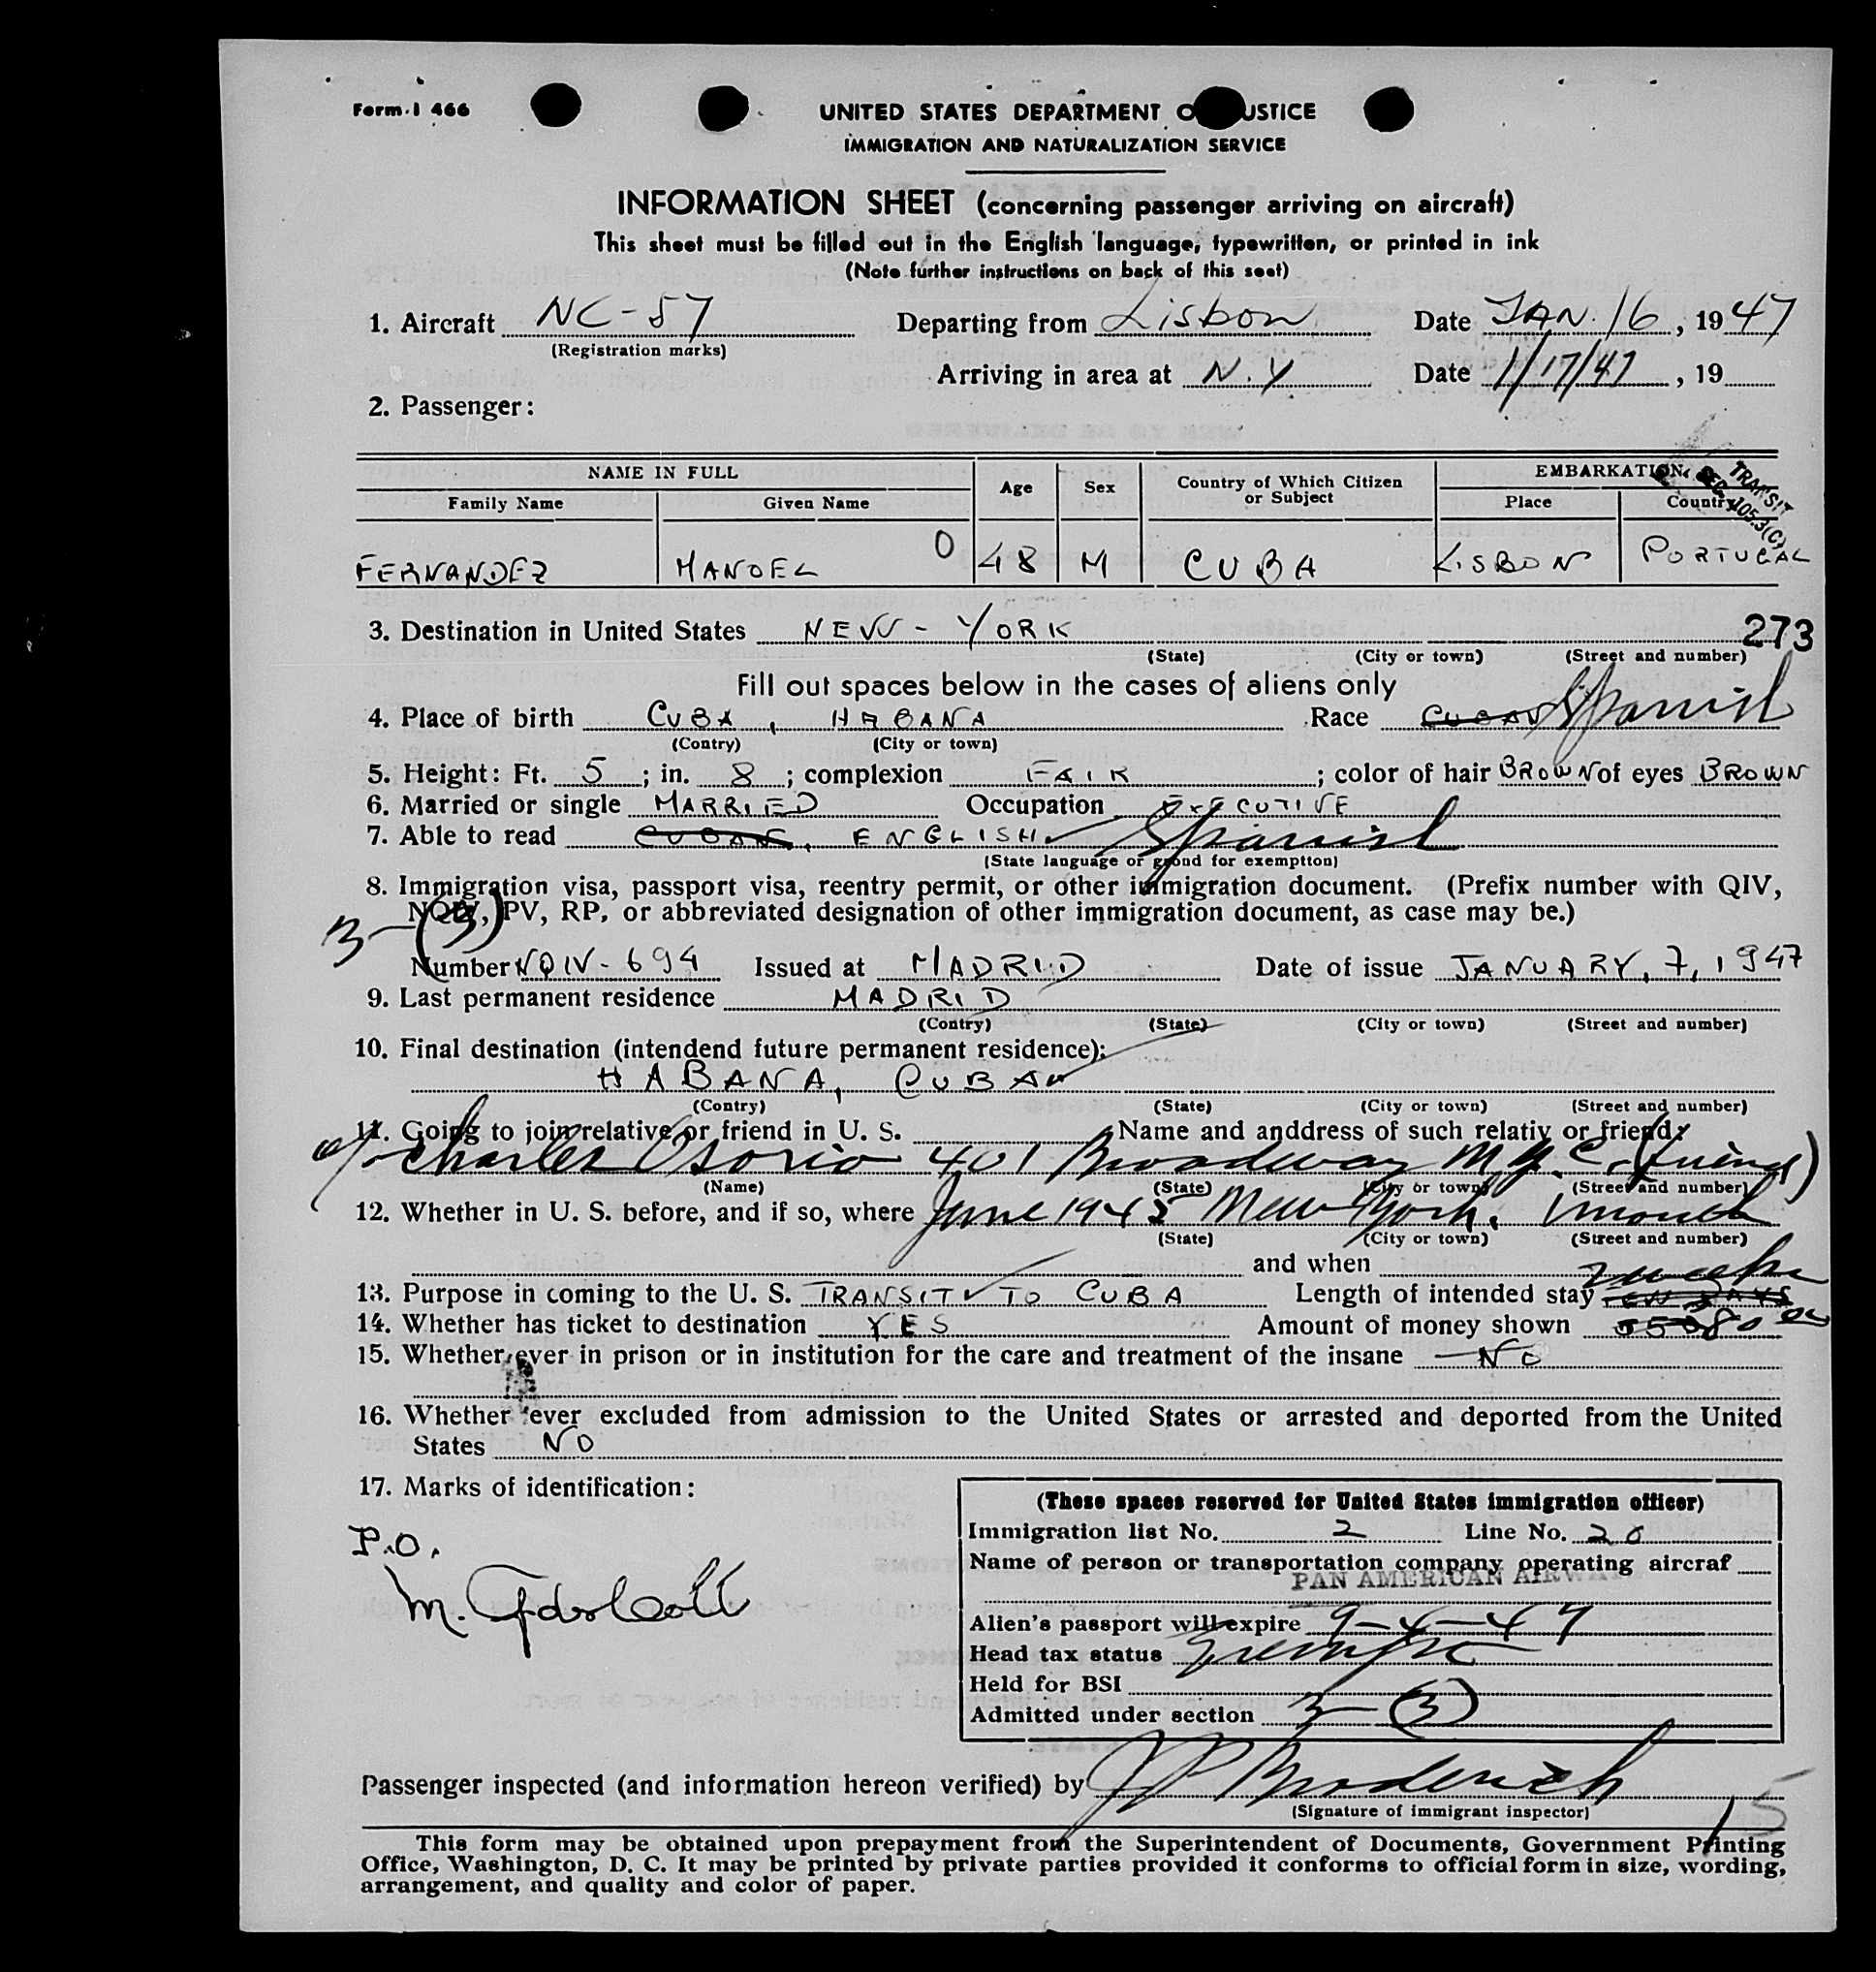 Form I 466
UNITED STATES DEPARTMENT O USTICE
IMMIGRATION AND NATURALIZATION SERVICE
INFORMATION SHEET (concerning passenger arriving on aircraft)
This sheet must be filled out in the English language, typewritten, or printed in ink
(Note further instructions on back of this seet)
1. Aircraft NC-57 Departing from Lisbon Date JAN. 16, 1947
(Registration marks)
Arriving in area at N.Y Date 1/17/47, 19
2. Passenger:
NAME IN FULL Age Sex Country of Which Citizen or Subject EMBARKATION
Family Name Given Name Place Country
TRANSIT
SEC. 105.3(C)
FERNANDEZ MANOEL 0 48 M CUBA LISBON PORTUGAL
3. Destination in United States NEW-YORK 273
(State) (City or town) (Street and number)
Fill out spaces below in the cases of aliens only
4. Place of birth CUBA, HABANA Race CUBAN Spanish
(Contry) (City or town)
5. Height: Ft. 5; in. 8; complexion FAIR; color of hair BROWN of eyes BROWN
6. Married or single MARRIED Occupation EXECUTIVE
7. Able to read CUBAN, ENGLISH Spanish
(State language or grond for exemptton)
8. Immigration visa, passport visa, reentry permit, or other immigration document. (Prefix number with QIV,
NQIV, PV, RP, or abbreviated designation of other immigration document, as case may be.)
3-(3)
Number NQIV-694 Issued at MADRID Date of issue JANUARY, 7, 1947
9. Last permanent residence MADRID
(Contry) (State) (City or town) (Street and number)
10. Final destination (intendend future permanent residence):
HABANA, CUBA
(Contry) (State) (City or town) (Street and number)
11. Going to join relative or friend in U. S. Name and anddress of such relativ or friend:
Charles Osorio 401 Broadway N.Y.C. (friend)
(Name) (State) (City or town) (Street and number)
12. Whether in U. S. before, and if so, where June 1945 New York. 1 month
(State) (City or town) (Street and number)
and when
13. Purpose in coming to the U. S. TRANSIT TO CUBA Length of intended stay TEN DAYS 2 weeks
14. Whether has ticket to destination YES Amount of money shown
15. Whether ever in prison or in institution for the care and treatment of the insane NO
16. Whether ever excluded from admission to the United States or arrested and deported from the United
States NO
17. Marks of identification:
P.O.
(These spaces reserved for United States immigration officer)
Immigration list No. 2 Line No. 20
Name of person or transportation company operating aircraf
PAN AMERICAN AIRWAYS
Alien's passport will expire 9-4-47
Head tax status
Held for BSI
Admitted under section 3-(3)
Passenger inspected (and information hereon verified) by J P Broderick
(Signature of immigrant inspector)
15
This form may be obtained upon prepayment from the Superintendent of Documents, Government Printing
Office, Washington, D. C. It may be printed by private parties provided it conforms to official form in size, wording,
arrangement, and quality and color of paper.